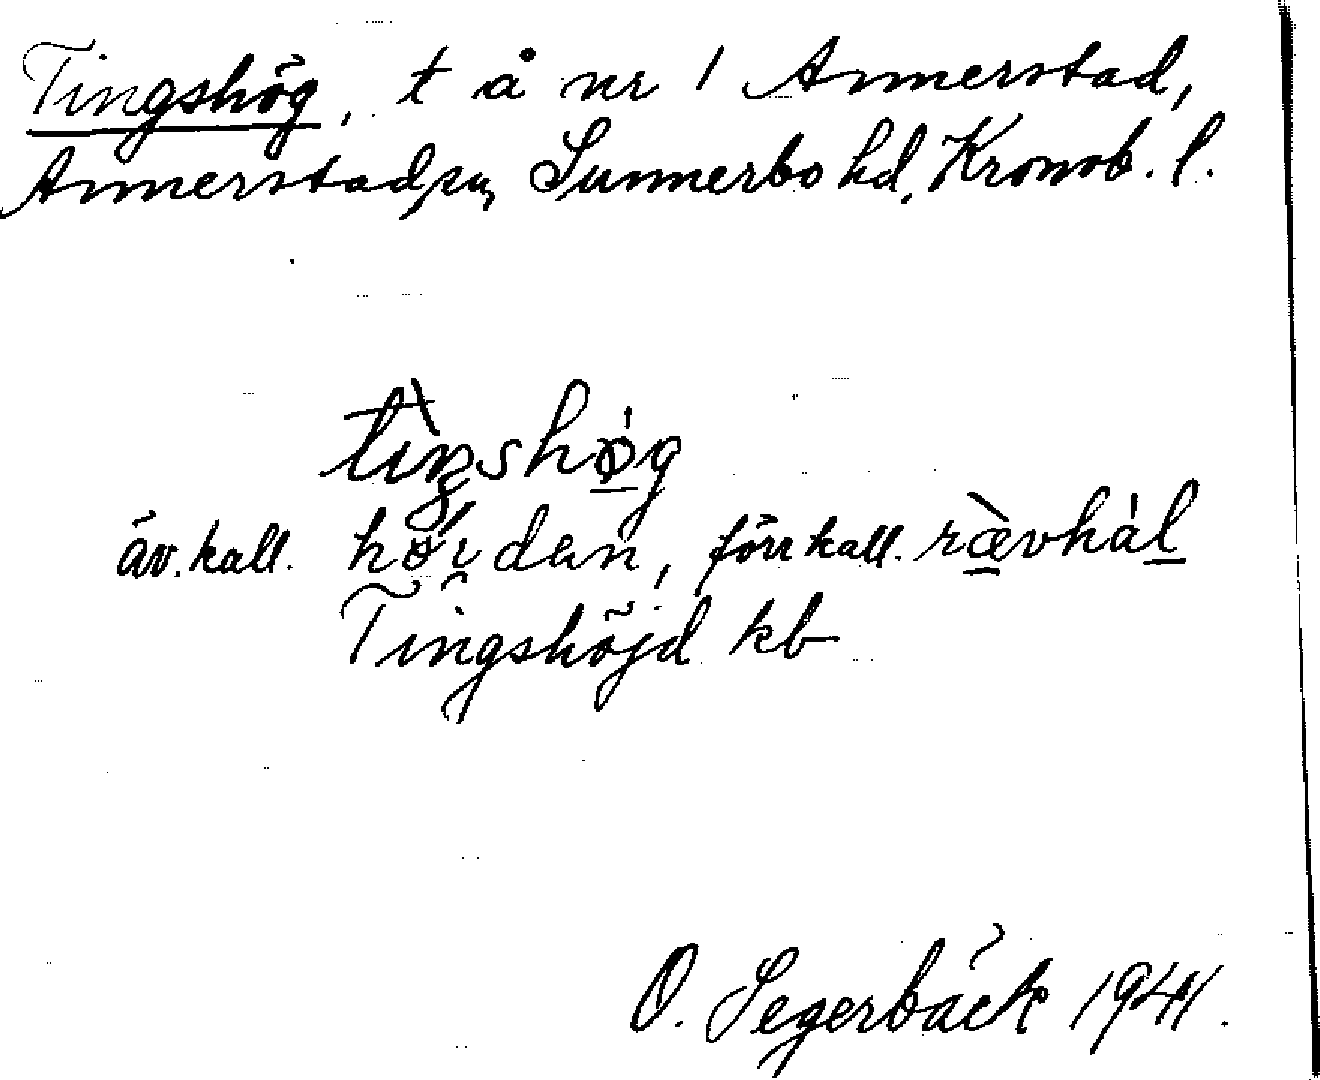 Tingshög, t å nr 1 Annerstad,
Annerstad sn, Sunnerbo hd, Kronob. l.
tìŋshǿ̱g
äv. kall. hø̀i̯dan, förr kall. ræ̱̀vhál̲
Tingshöjd kb
O. Segerbäck 1941.